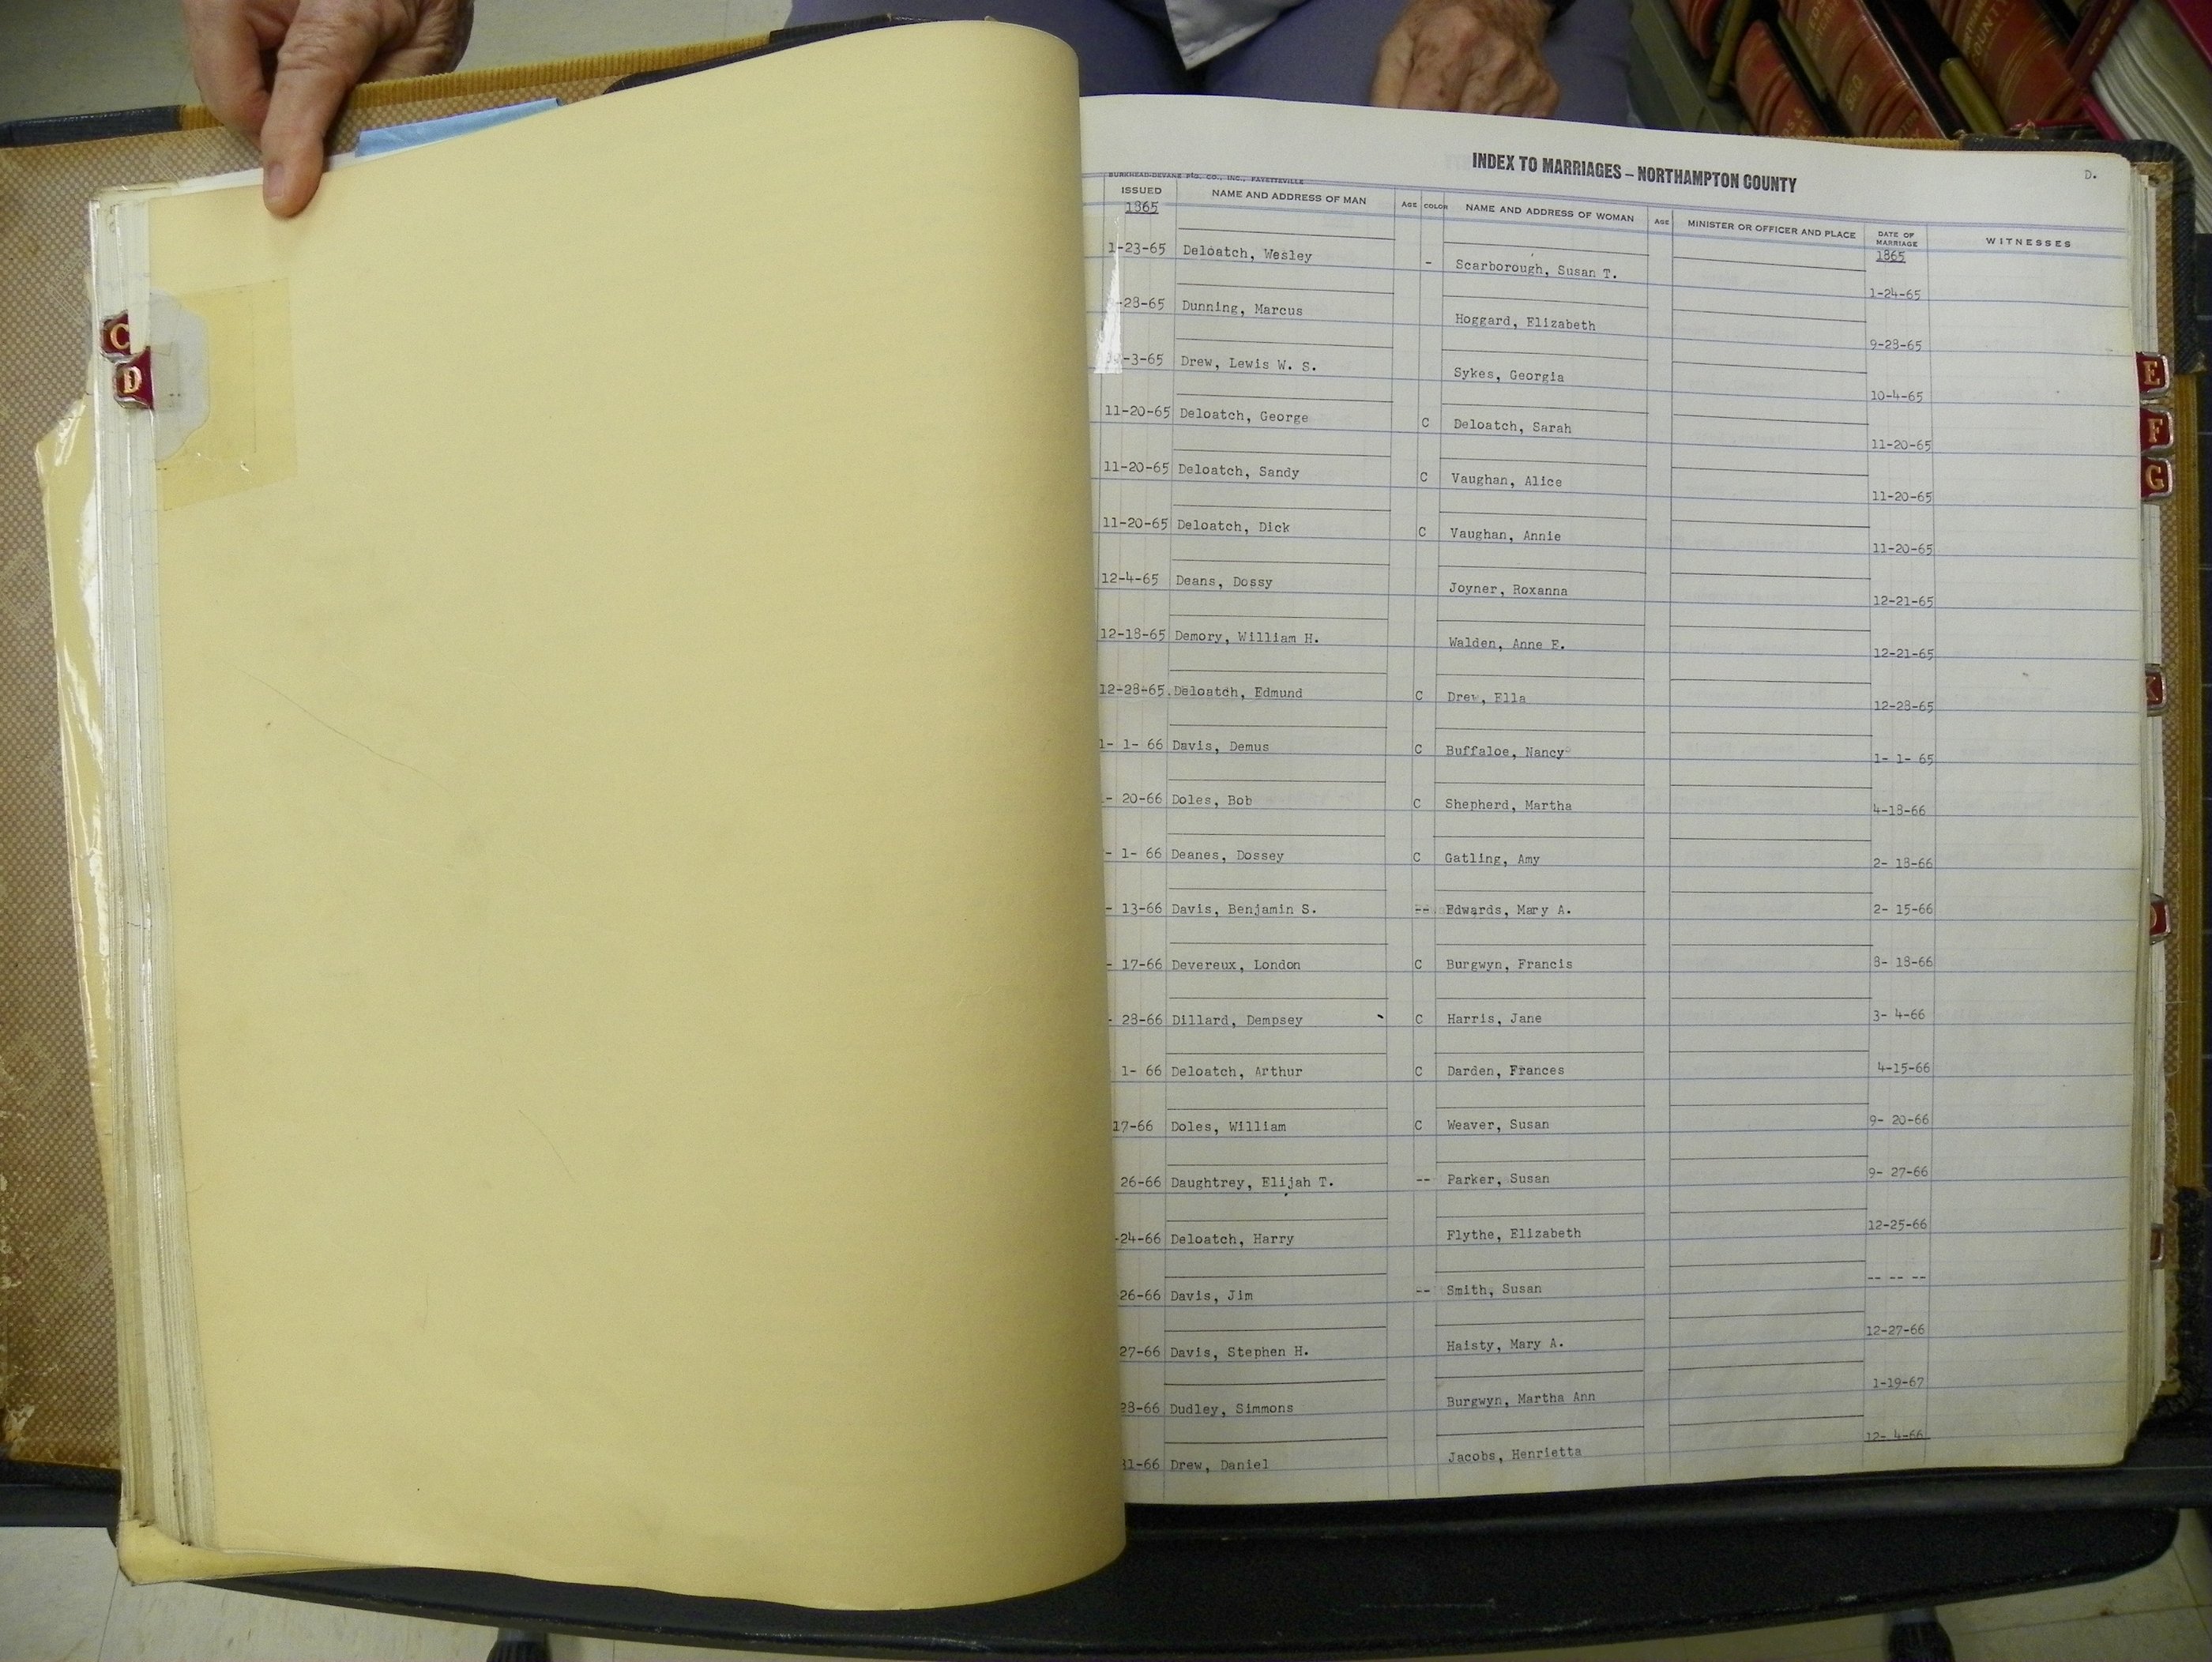 INDEX TO MARRIAGES – NORTHAMPTON COUNTY
D.
BURKHEAD-DEVANE PTG. CO., INC., FAYETTEVILLE
ISSUED NAME AND ADDRESS OF MAN AGE COLOR NAME AND ADDRESS OF WOMAN AGE MINISTER OR OFFICER AND PLACE DATE OF MARRIAGE WITNESSES
1865 1865
1-23-65 Deloatch, Wesley - Scarborough, Susan T. 1-24-65
-28-65 Dunning, Marcus Hoggard, Elizabeth 9-28-65
-3-65 Drew, Lewis W. S. Sykes, Georgia 10-4-65
11-20-65 Deloatch, George C Deloatch, Sarah 11-20-65
11-20-65 Deloatch, Sandy C Vaughan, Alice 11-20-65
11-20-65 Deloatch, Dick C Vaughan, Annie 11-20-65
12-4-65 Deans, Dossy Joyner, Roxanna 12-21-65
12-18-65 Demory, William H. Walden, Anne E. 12-21-65
12-28-65. Deloatch, Edmund C Drew, Ella 12-28-65
1- 1- 66 Davis, Demus C Buffaloe, Nancy 1- 1- 65
- 20-66 Doles, Bob C Shepherd, Martha 4-18-66
- 1- 66 Deanes, Dossey C Gatling, Amy 2- 18-66
- 13-66 Davis, Benjamin S. -- Edwards, Mary A. 2- 15-66
- 17-66 Devereux, London C Burgwyn, Francis 8- 18-66
- 28-66 Dillard, Dempsey C Harris, Jane 3- 4-66
1- 66 Deloatch, Arthur C Darden, Frances 4-15-66
17-66 Doles, William C Weaver, Susan 9- 20-66
26-66 Daughtrey, Elijah T. -- Parker, Susan 9- 27-66
-24-66 Deloatch, Harry Flythe, Elizabeth 12-25-66
26-66 Davis, Jim -- Smith, Susan -- -- --
27-66 Davis, Stephen H. Haisty, Mary A. 12-27-66
28-66 Dudley, Simmons Burgwyn, Martha Ann 1-19-67
31-66 Drew, Daniel Jacobs, Henrietta 12- 4-66
C
D
E
F
G
K